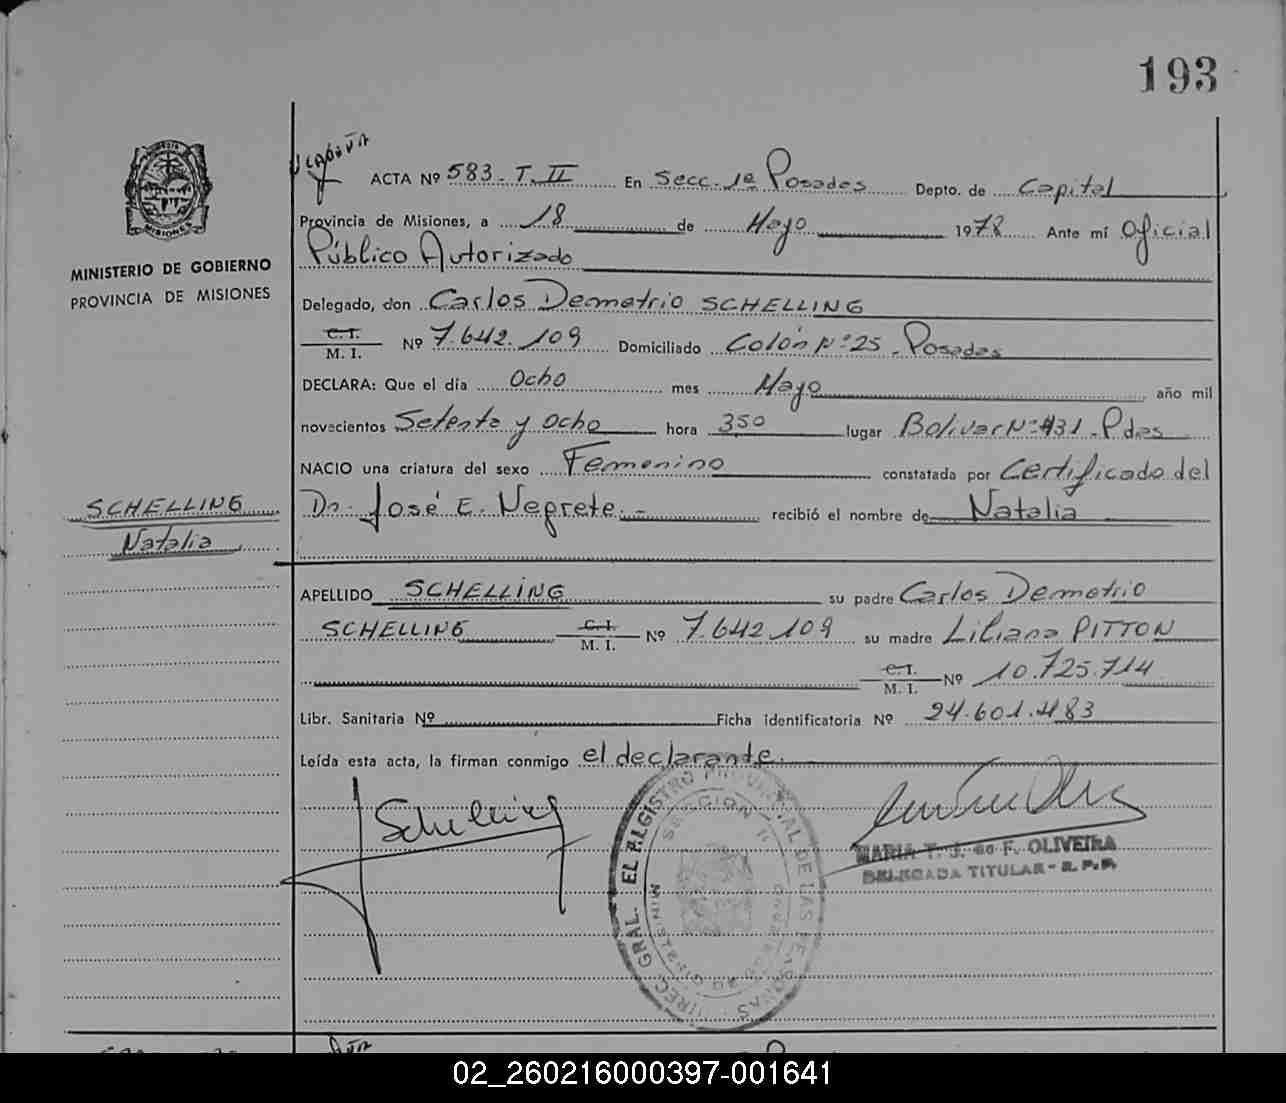 193
MISIONES
MINISTERIO DE GOBIERNO
PROVINCIA DE MISIONES
SCHELLING
Natalia
ACTA Nº 583 - T. II En Secc. 1ª Posadas Depto. de Capital
Provincia de Misiones, a 18 de Mayo 1978 Ante mí Oficial
Público Autorizado
Delegado, don Carlos Demetrio SCHELLING
C. I.
M. I. Nº 7.642.109 Domiciliado Colón Nº 25 - Posadas
DECLARA: Que el día Ocho mes Mayo año mil
novecientos Setenta y Ocho hora 3,50 lugar Bolivar Nº 431 - Pdas
NACIO una criatura del sexo Femenino constatada por Certificado del
Dr. José E. Negrete.- recibió el nombre de Natalia
APELLIDO SCHELLING su padre Carlos Demetrio
SCHELLING C. I. M. I. Nº 7.642.109 su madre Liliana PITTON
C. I. M. I. Nº 10.725.714
Libr. Sanitaria Nº Ficha identificatoria Nº 24.601.483
Leída esta acta, la firman conmigo el declarante.
Schelling
MARIA T. J. de F. OLIVEIRA
DELEGADA TITULAR - R. P. P.
DIREC. GRAL. EL REGISTRO PROVINCIAL DE LAS PERSONAS
SECCION
02_260216000397-001641